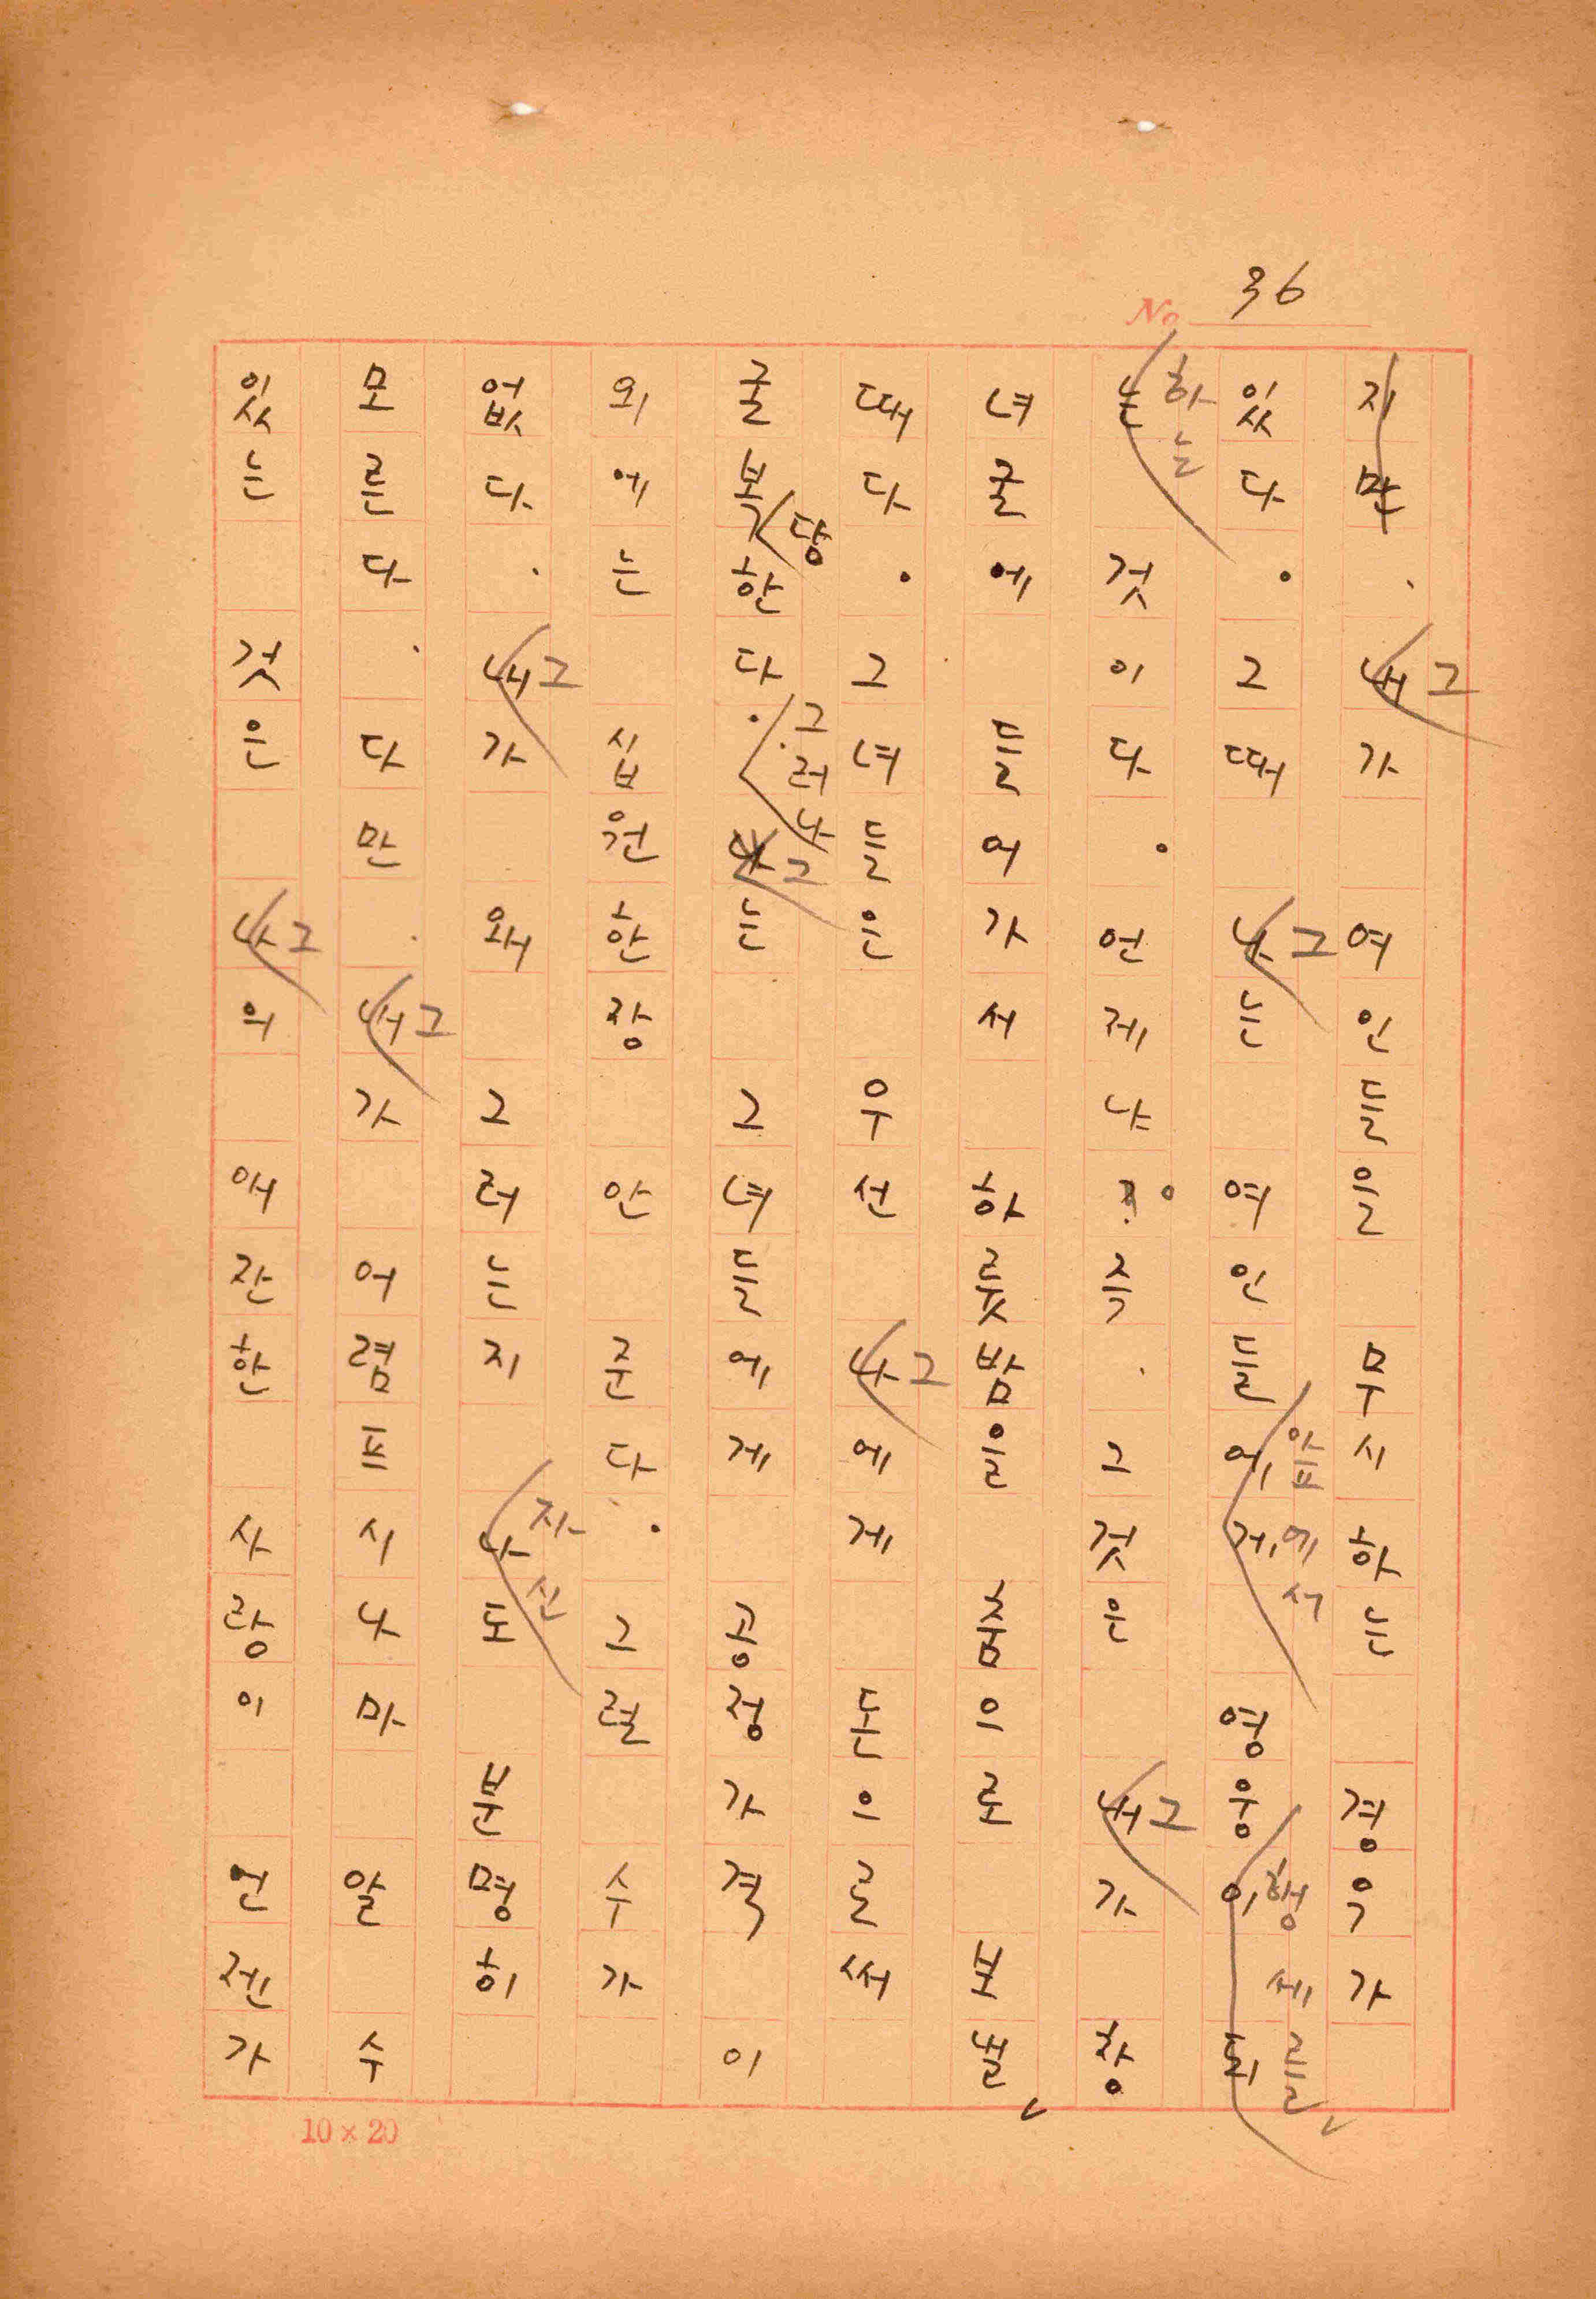 36
No
지만. 내그가 여인들을 무시하는 경우가
있다. 그때 나그는 여인들에게앞에서 영웅이 되행세를
는하는 것이다. 언제냐? 즉, 그것은 내그가 창
녀굴에 들어가서 하룻밤을 춤으로 보낼
때다. 그녀들은 우선 나그에게 돈으로써
굴복당한다. 그러나 나그는 그녀들에게 공정가격 이
외에는 십원 한장 안 준다. 그럴 수가
없다. 내그가 왜 그러는지 나자신도 분명히
모른다. 다만, 내그가 어렴프시나마 알 수
있는 것은 나그의 애잔한 사랑이 언젠가
10×20